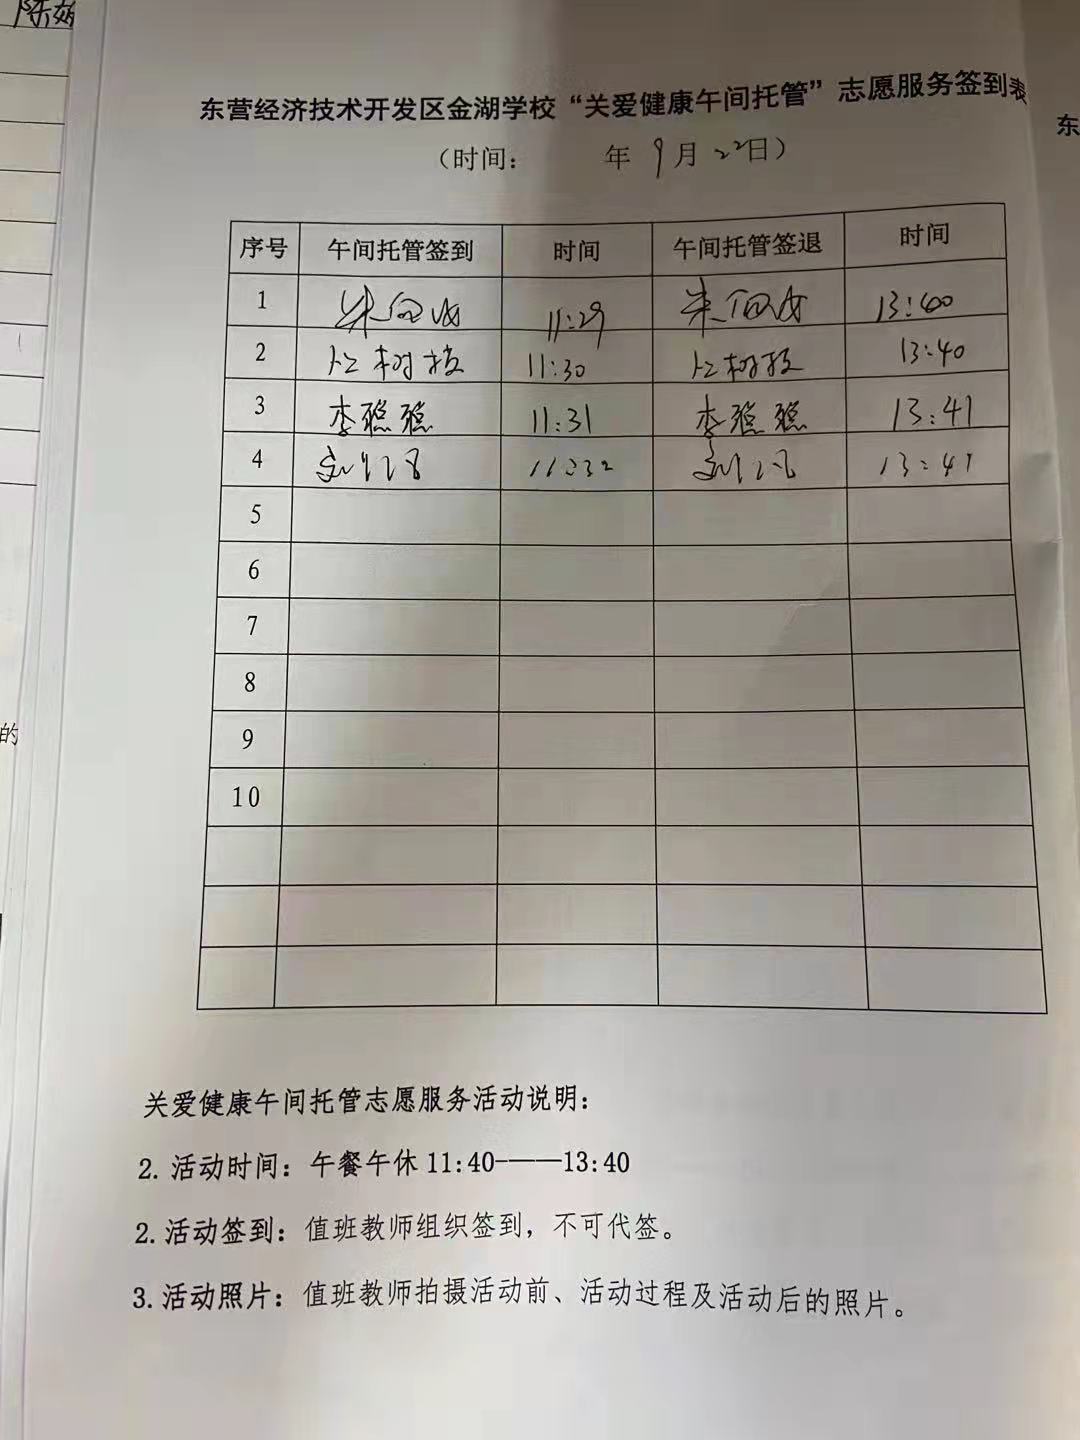 东营经济技术开发区金湖学校“关爱健康午间托管”志愿服务签到表
（时间： 年 9月 22日）
序号 午间托管签到 时间 午间托管签退 时间
1 11:29 13:40
2 11:30 13:40
3 李聪聪 11:31 李聪聪 13:41
4 11:32 13:41
5
6
7
8
9
10
关爱健康午间托管志愿服务活动说明：
2. 活动时间：午餐午休 11:40-——13:40
2. 活动签到：值班教师组织签到，不可代签。
3. 活动照片：值班教师拍摄活动前、活动过程及活动后的照片。
的
东